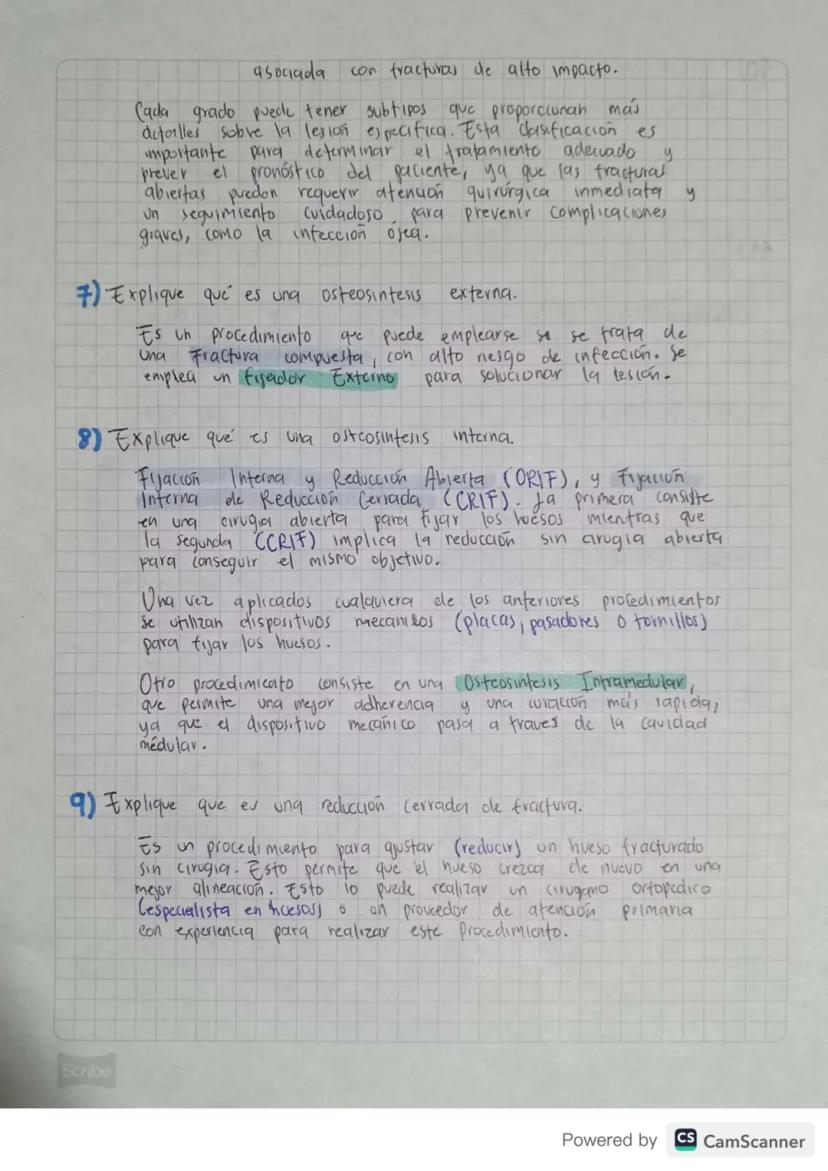 asociada con fracturas de alto impacto.
Cada grado puede tener subtipos que proporcionan más
detalles sobre la lesión específica. Esta clasificación es
importante para determinar el tratamiento adecuado y
prever el pronóstico del paciente, ya que las fracturas
abiertas pueden requerir atención quirúrgica inmediata y
un seguimiento cuidadoso para prevenir complicaciones
graves, como la infección ósea.
7) Explique qué es una osteosíntesis externa.
Es un procedimiento que puede emplearse si se trata de
una Fractura compuesta, con alto riesgo de infección. Se
emplea un fijador Externo para solucionar la lesión.
8) Explique qué es una osteosíntesis interna.
Fijación Interna y Reducción Abierta (ORIF), y Fijación
Interna de Reducción Cerrada (CRIF). La primera consiste
en una cirugía abierta para fijar los huesos mientras que
la segunda (CRIF) implica la reducción sin cirugía abierta
para conseguir el mismo objetivo.
Una vez aplicados cualquiera de los anteriores procedimientos
se utilizan dispositivos mecánicos (placas, pasadores o tornillos)
para fijar los huesos.
Otro procedimiento consiste en una Osteosíntesis Intramedular,
que permite una mejor adherencia y una curación más rápida,
ya que el dispositivo mecánico pasa a través de la cavidad
médular.
9) Explique que es una reducción cerrada de fractura.
Es un procedimiento para ajustar (reducir) un hueso fracturado
sin cirugía. Esto permite que el hueso crezca de nuevo en una
mejor alineación. Esto lo puede realizar un cirugano ortopédico
(especialista en huesos) o un proveedor de atención primaria
con experiencia para realizar este procedimiento.
Scribe
Powered by CS CamScanner